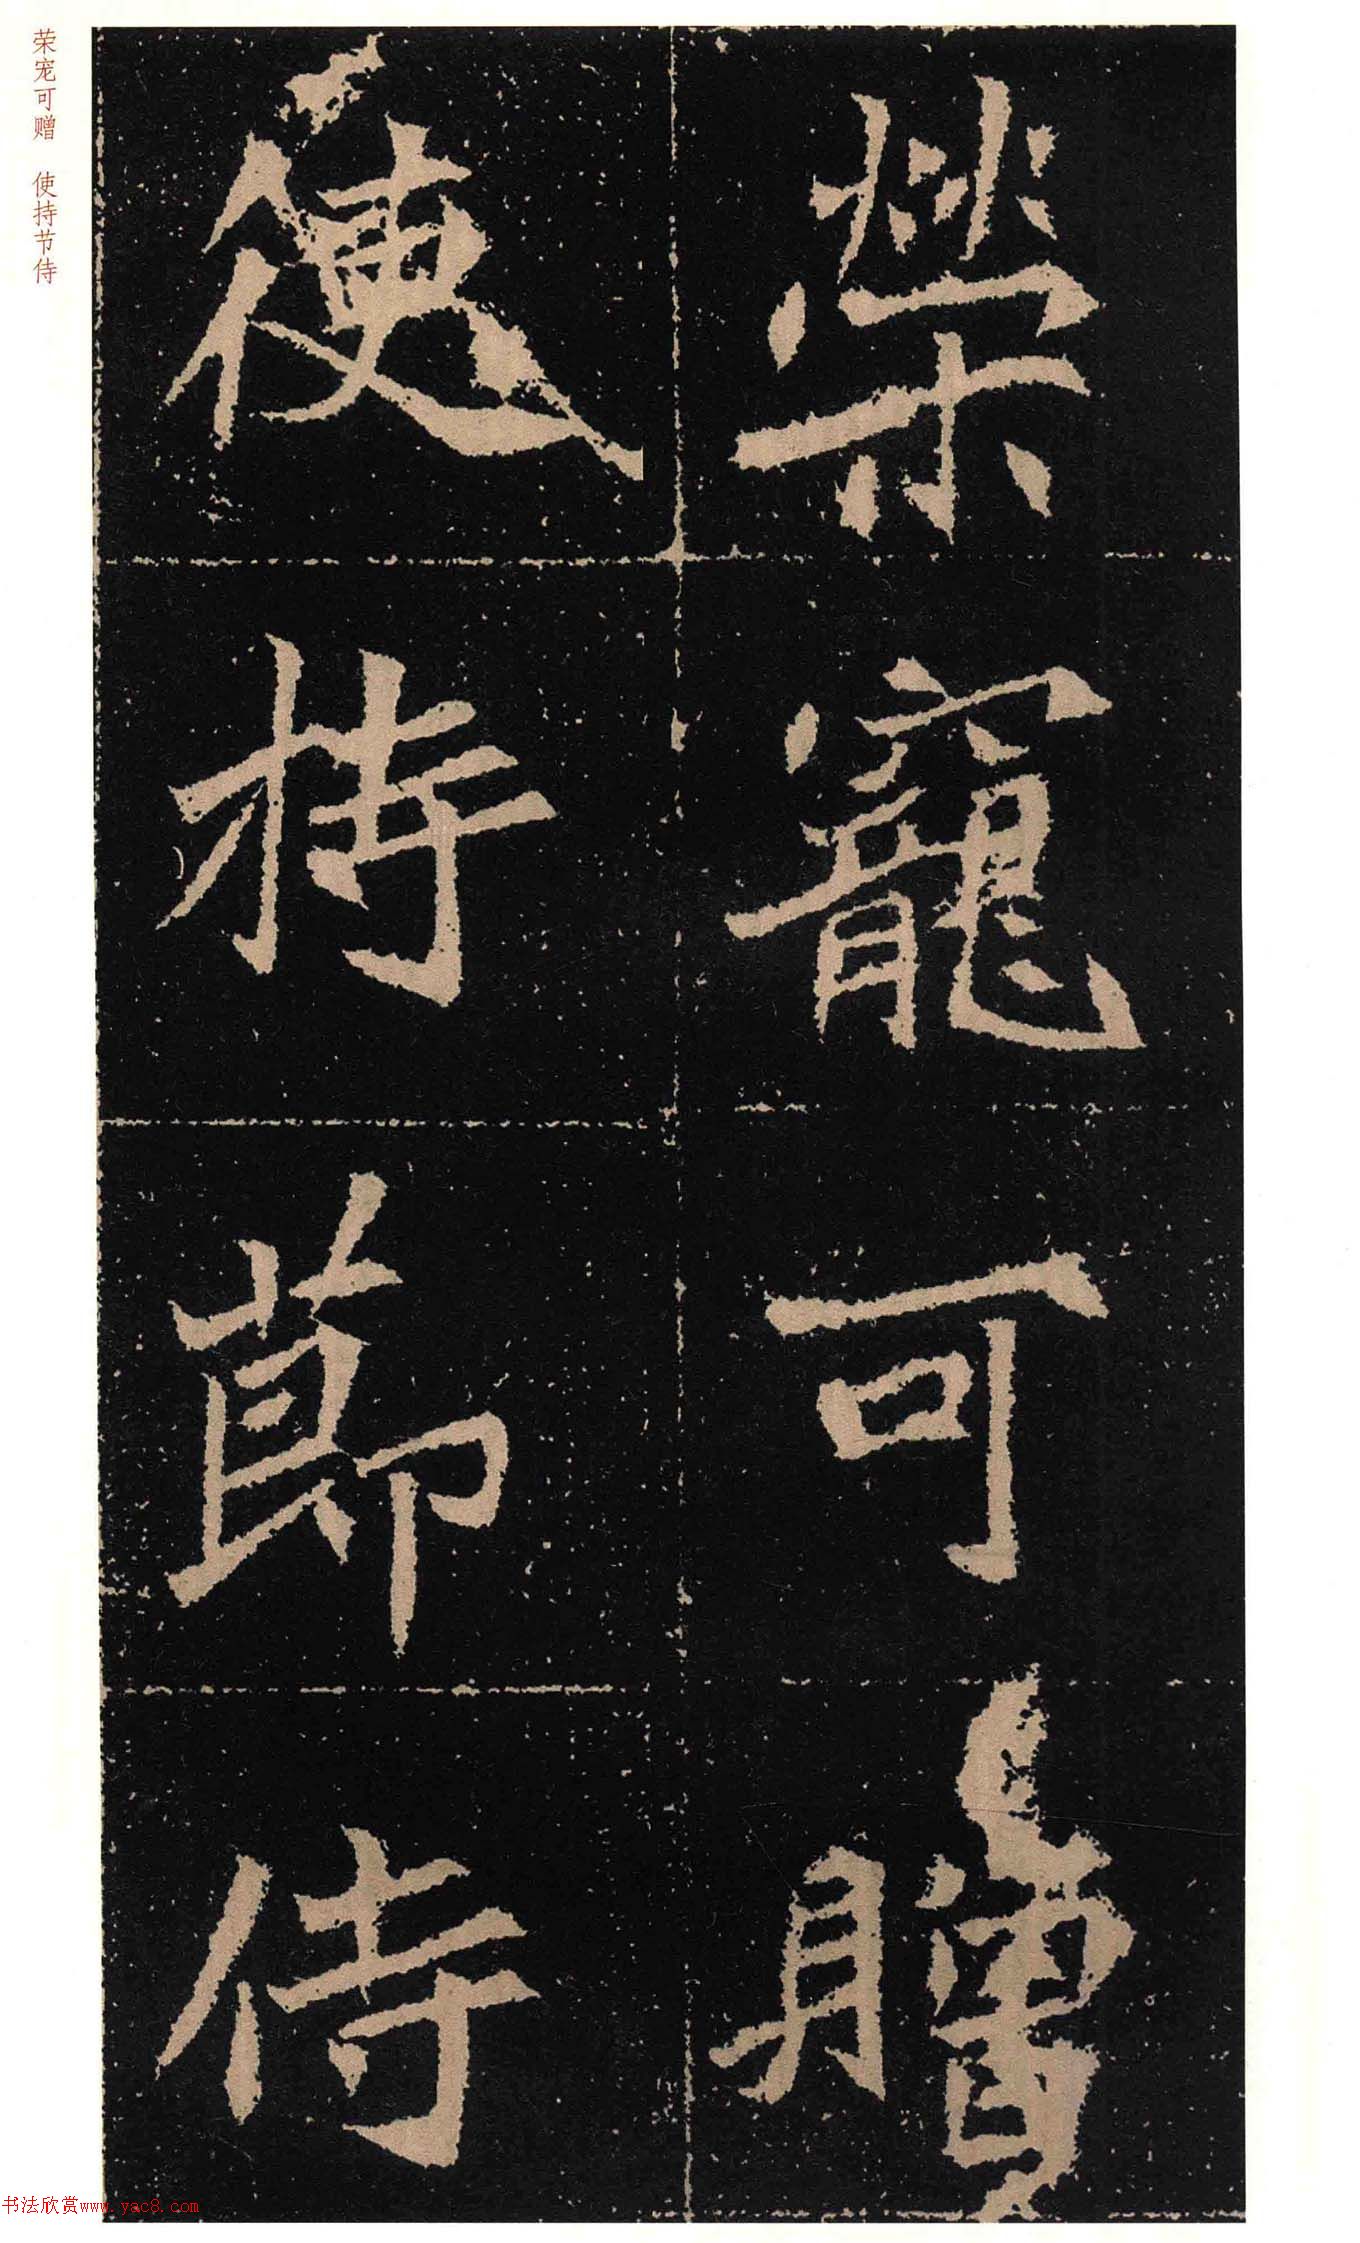 荣宠可赠 使持节侍
榮寵可贈
使持節侍
书法欣赏www.yac8.com